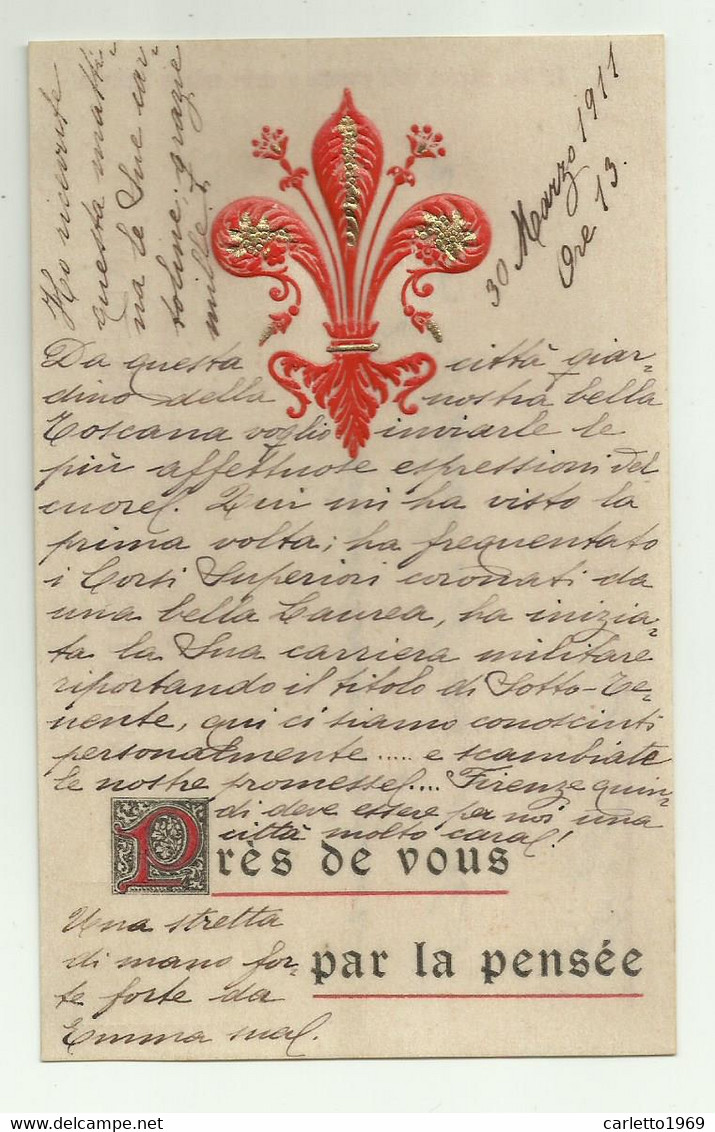 30 Marzo 1911
Ore 13.
Ho ricevute
questa matti-
na le Sue car-
toline; grazie
mille.
Da questa città giar-
dino della nostra bella
Toscana voglio inviarle le
più affettuose espressioni del
cuore!. Qui mi ha visto la
prima volta; ha frequentato
i Corsi Superiori coronati da
una bella Laurea, ha inizia-
ta la Sua carriera militare
riportando il titolo di Sotto-Te-
nente, qui ci siamo conosciuti
personalmente ..... e scambiate
le nostre promesse!.... Firenze quin-
di deve essere per noi una
città molto cara!!
Près de vous
par la pensée
Una stretta
di mano for-
te forte da
Emma sua!.
carletto1969